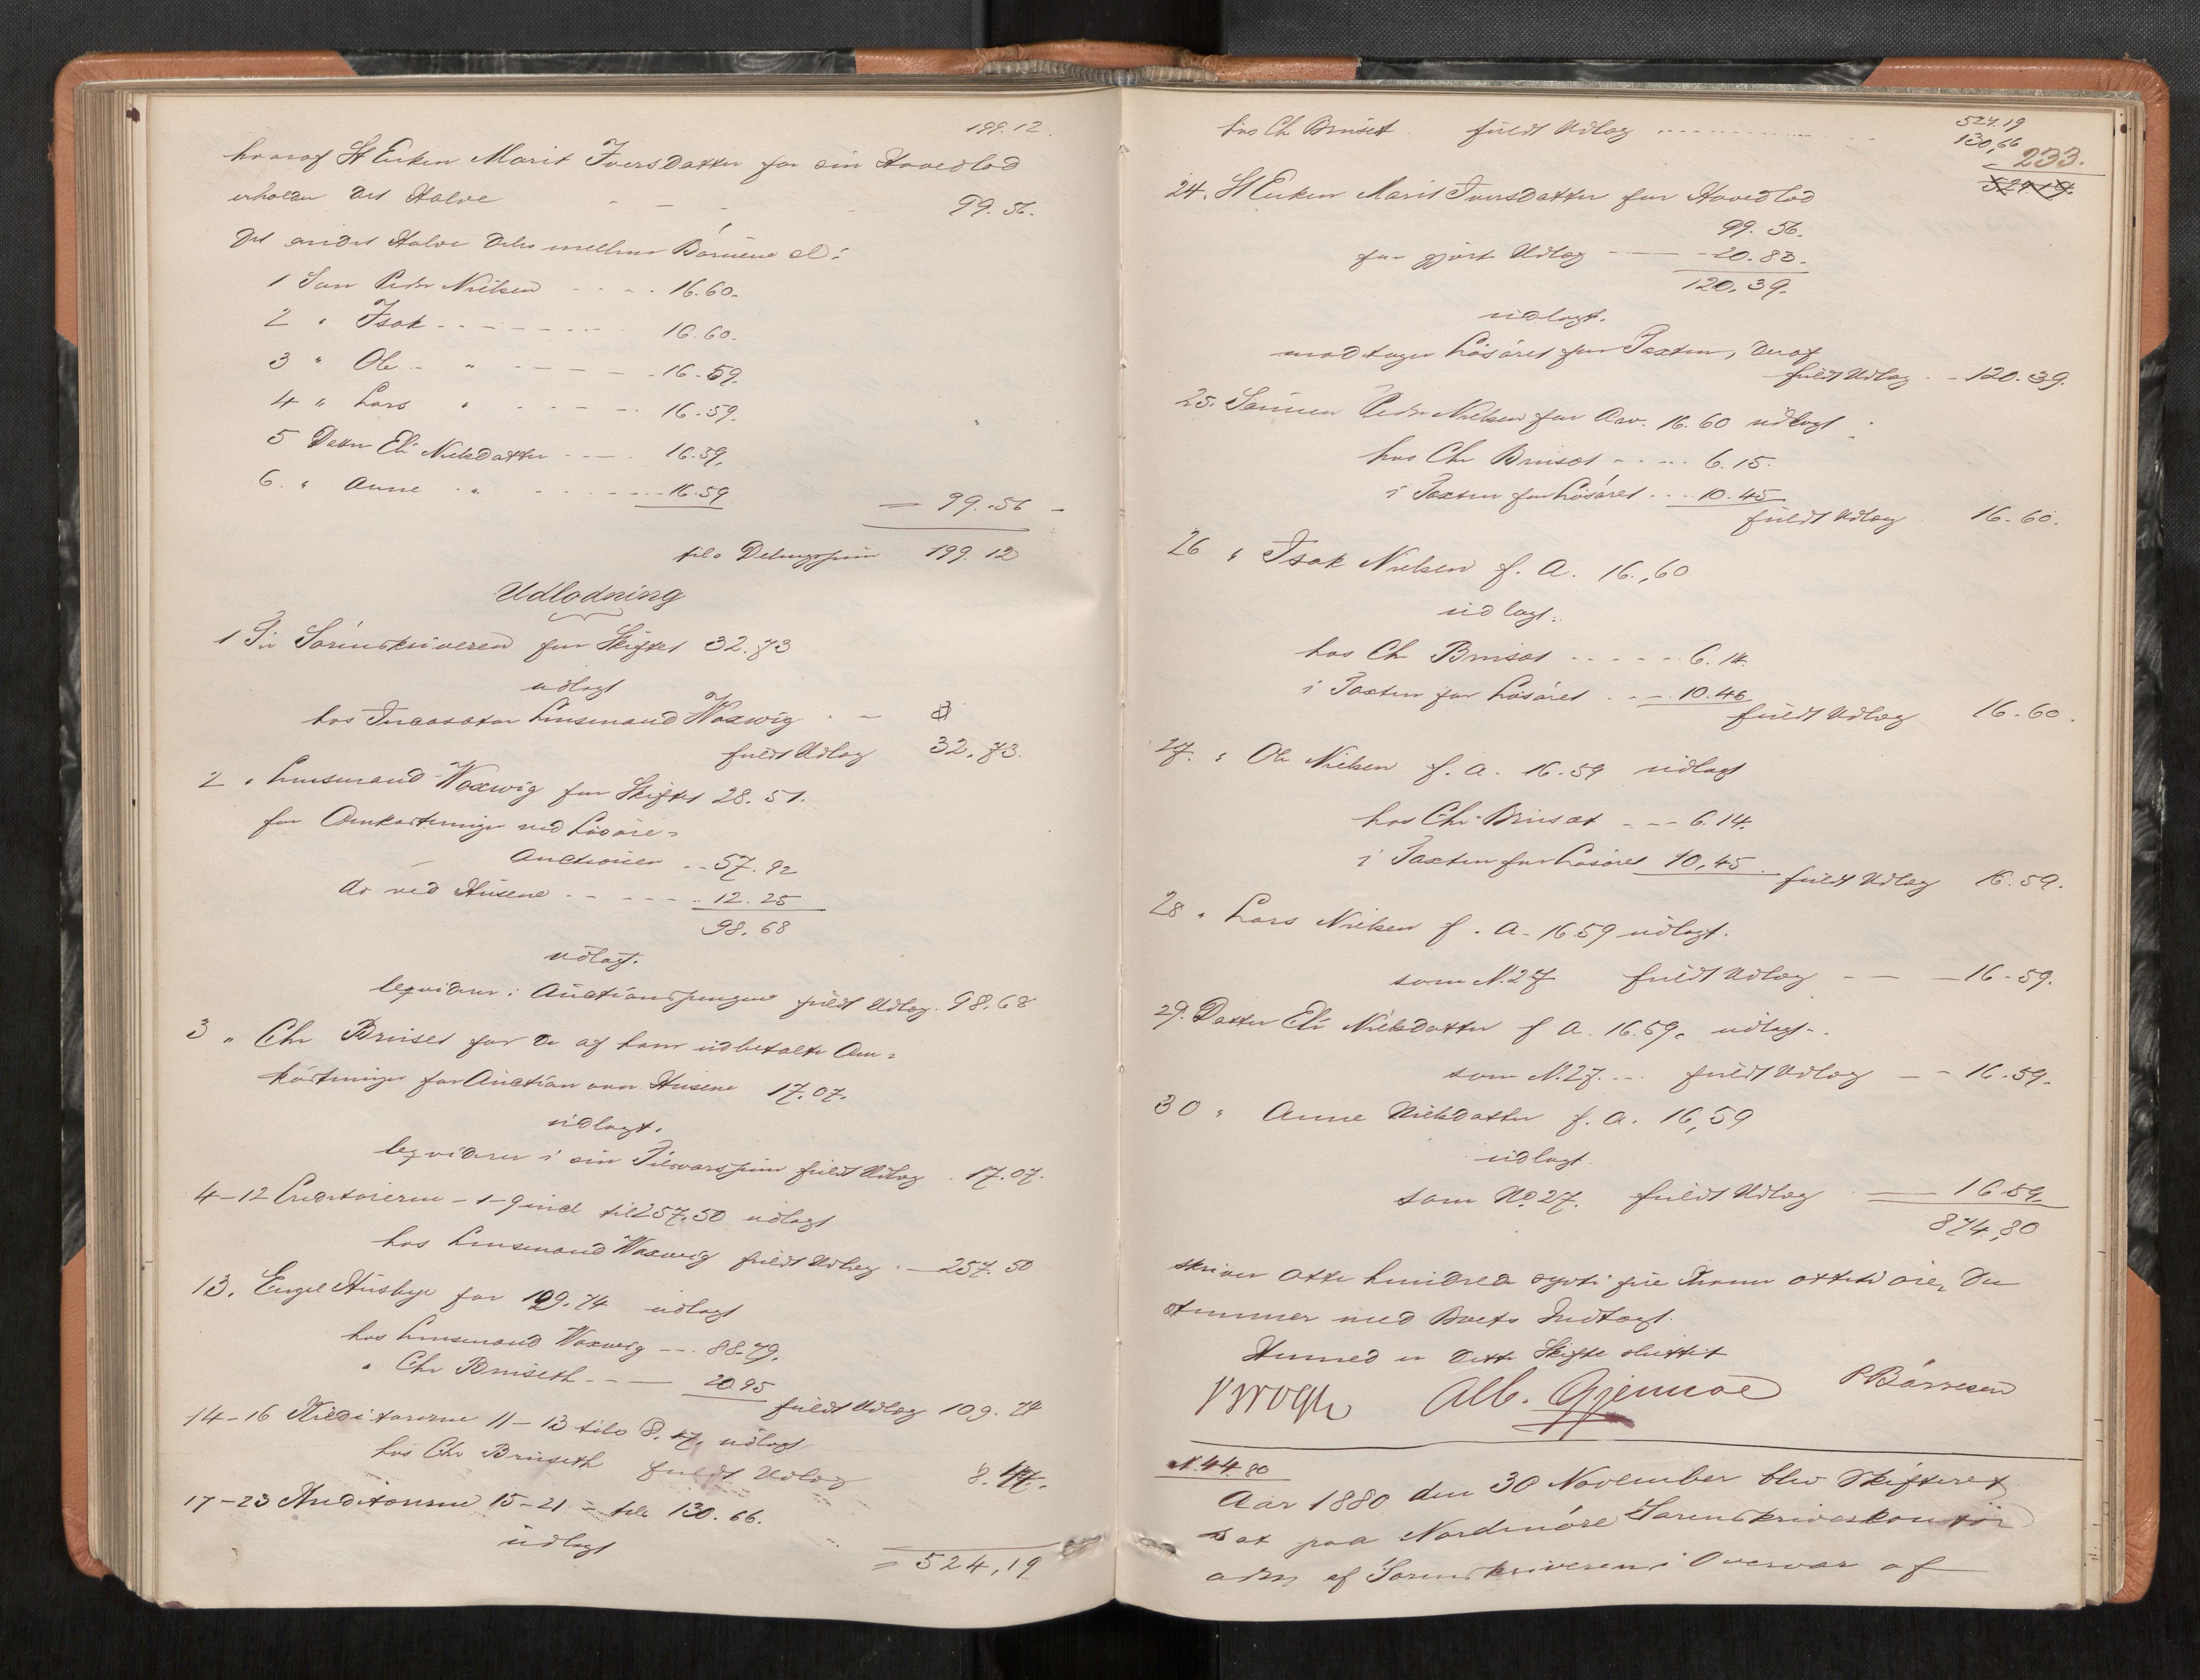 199.12.
hvoraf St Enken Marit Iversdatter for sin Hovedlod
erholder det Halve - - - 99.56.
det andet Halve deles mellem Børnene :
1 Søn Peder Nielsen - - - - 16.60.
2 " Isak - - - - - - - 16.60.
3 " Ole - " - - - - - 16.59.
4 " Lars " - - - - - 16.59.
5 Datter Eli Nielsdatter - - - - 16.59.
6. " Anne - " - - - - - - 16.59 = 99.56 -
tils Delingssum 199.12
Udlodning
1 Til Sorenskriveren for Skiftet 32.73
udlagt
hos Incassator Lensmand Waxwig - -
fuldt Udlæg 32.73.
2 " Lensmand Waxwig for Skiftet 28.51.
for Omkostninger ved Løsøre-
Auctionen - - 57.92
do ved Husene - - - - - 12.25
98.68
udlagt.
leqviderer i Auctionspengene fuldt Udlæg. 98.68
3 " Chr Bruset for de af ham udbetalte Om-
kostninger for Auction over Husene 17.07.
udlagt.
leqviderer i sin Tilsvarssum fuldt Udlæg . 17.07.
4-12 Creditorerne - 1-9 incl til 257.50 udlagt
hos Lensmand Waxwig fuldt Udlæg . - 257.50
13. Engel Husbye for 109.74 udlagt
hos Lensmand Waxwig - - . 88.79.
" Chr Bruseth - - - 20.95
fuldt Udlæg 109.74
14-16 Kreditorerne 11-13 tils 8.47. udlagt
hos Chr Bruseth fuldt Udlæg 8.47.
17-23 Kreditorerne 15-21 - tils 130.66.
udlagt
= 524,19
524.19
hos Ch Bruset fuldt Udlæg - - - - - - 130,66
233.
524.19.
24. St Enken Marit Iversdatter for Hovedlod
99.56.
for gjort Udlæg - - - 20.83.
120.39.
udlagt.
modtager Løsøret for Taxten, deraf
fuldt Udlæg - - 120.39.
25. Sønnen Peder Nielsen for Arv. 16.60 udlagt
hos Chr Bruset - - - - 6.15.
i Taxten for Løsøret - - - 10.45
fuldt Udlæg 16.60.
26 " Isak Nielsen f. A. 16.,60
udlagt.
hos Ch Bruset - - - - - 6.14.
i Taxten for Løsøret - - - 10.46
fuldt Udlæg 16.60.
27. " Ole Nielsen f. A. 16.59 udlagt
hos Chr Bruset - - - 6.14.
i Taxten for Løsøret 10,45
fuldt Udlæg 16.59.
28 " Lars Nielsen f. A. 16.59 udlagt.
som N.27 fuldt Udlæg - - - 16.59.
29. Datter Eli Nielsdatter f A. 16.59. udlagt -.
som N.27. - . fuldt Udlæg - - 16.59.
30 " Anne Nielsdatter f. A. 16,59
udlagt.
som No 27. fuldt Udlæg - - 16.59.
874,80
skriver otte hundrede sytti fire Kroner otteti øre, der
stemmer med Boets Indtægt.
Hermed er dette Skifte sluttet
Alb. Gjemnæs P Børresen
N.44.80
Aar 1880 den 30 November blev Skifteret
sat paa Nordmøre Sorenskriverkontor
adm af Sorenskriveren i Overvær af